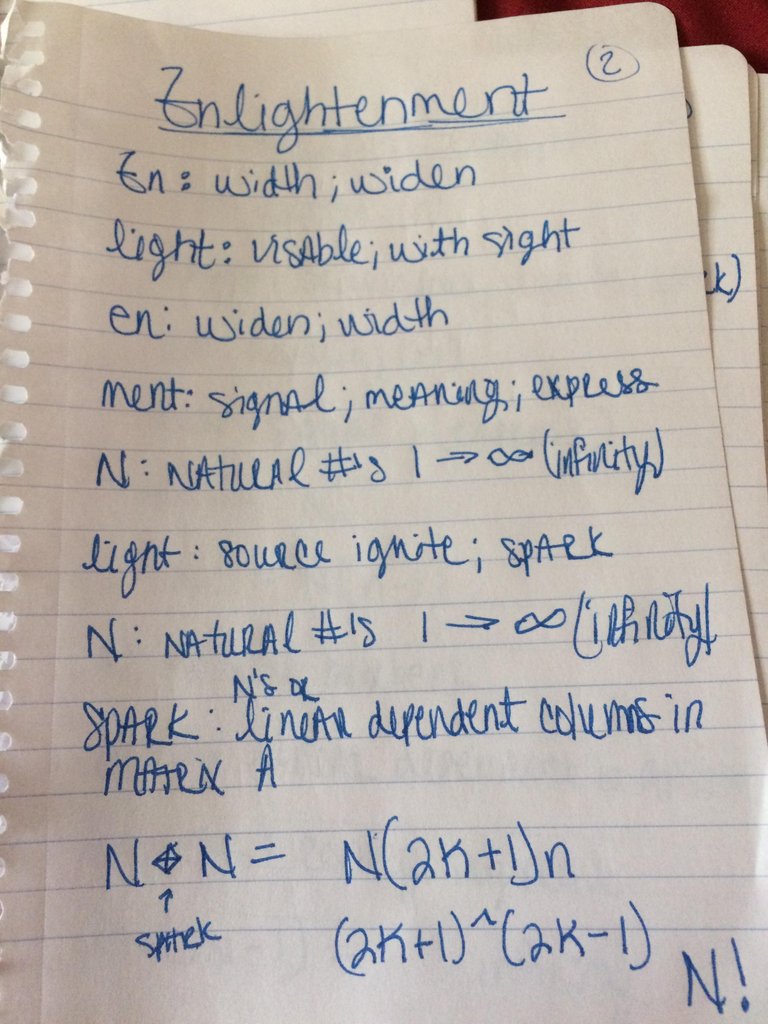 2
Enlightenment
En: width; widen
light: visable; with sight
en: widen; width
ment: signal; meaning; express
N: Natural #'s 1 → ∞ (infinity)
light: source ignite; spark
N: Natural #'s 1 → ∞ (infinity)
N's or
spark: linear dependent columns in
matrix A
N ⟡ N = N(2K+1)n
↑
spark (2K+1)^(2K-1)
N!
k)